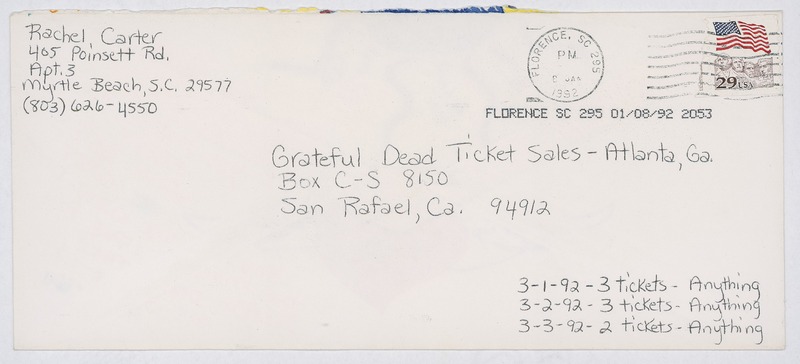 Rachel Carter
405 Poinsett Rd.
Apt. 3
Myrtle Beach, S.C. 29577
(803) 626-4550
FLORENCE, SC 295
PM
JAN
1992
29 USA
FLORENCE SC 295 01/08/92 2053
Grateful Dead Ticket Sales - Atlanta, Ga.
Box C-S 8150
San Rafael, Ca. 94912
3-1-92 - 3 tickets - Anything
3-2-92 - 3 tickets - Anything
3-3-92 - 2 tickets - Anything